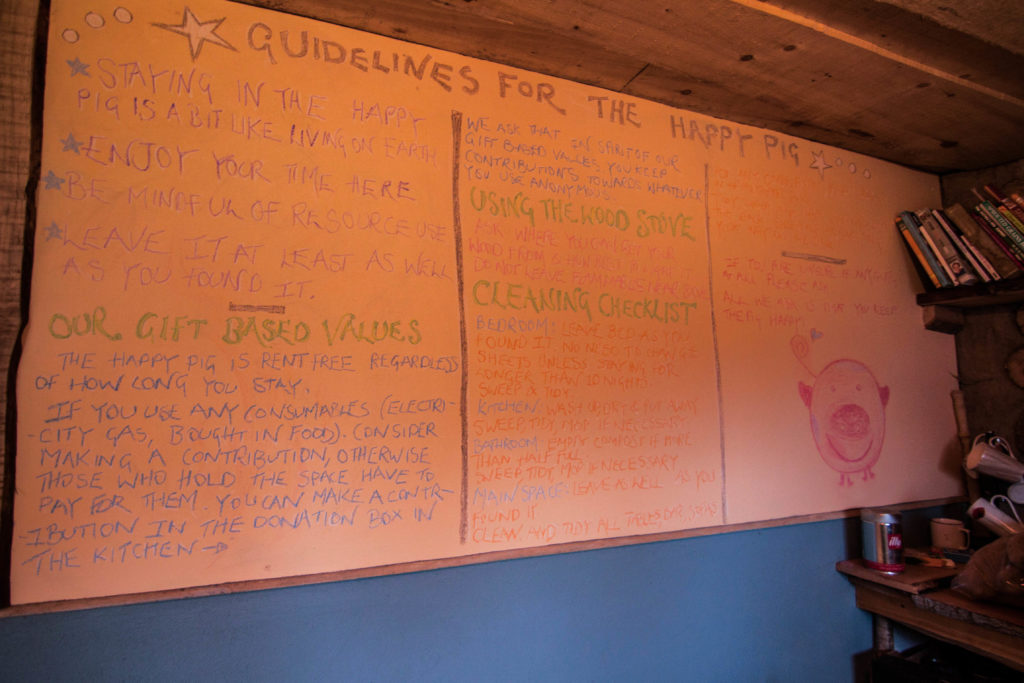 GUIDELINES FOR THE HAPPY PIG
STAYING IN THE HAPPY
PIG IS A BIT LIKE LIVING ON EARTH
ENJOY YOUR TIME HERE
BE MINDFUL OF RESOURCE USE
LEAVE IT AT LEAST AS WELL
AS YOU FOUND IT.
OUR GIFT BASED VALUES
THE HAPPY PIG IS RENT FREE REGARDLESS
OF HOW LONG YOU STAY.
IF YOU USE ANY CONSUMABLES (ELECTRI-
-CITY GAS, BOUGHT IN FOOD). CONSIDER
MAKING A CONTRIBUTION, OTHERWISE
THOSE WHO HOLD THE SPACE HAVE TO
PAY FOR THEM. YOU CAN MAKE A CONTR-
-IBUTION IN THE DONATION BOX IN
THE KITCHEN →
WE ASK THAT IN SPIRIT OF OUR
GIFT BASED VALUES, YOU KEEP
CONTRIBUTIONS TOWARDS WHATEVER
YOU USE ANONYMOUS.
USING THE WOOD STOVE
ASK WHERE YOU CAN GET YOUR
WOOD FROM &
DO NOT LEAVE FLAMMABLES NEAR
CLEANING CHECKLIST
BEDROOM: LEAVE BED AS YOU
FOUND IT. NO NEED TO CHANGE
SHEETS UNLESS STAYING FOR
LONGER THAN 10 NIGHTS.
SWEEP & TIDY.
KITCHEN: WASH UP, DRY & PUT AWAY
SWEEP, TIDY, MOP IF NECESSARY
BATHROOM: EMPTY COMPOST IF MORE
THAN HALF FULL.
SWEEP TIDY MOP IF NECESSARY
MAIN SPACE: LEAVE AS WELL AS YOU
FOUND IT
CLEAN AND TIDY ALL TABLES, BAR, SOFAS
IF YOU ARE UNSURE OF ANYTHING
PLEASE ASK
ALL WE ASK IS THAT YOU KEEP
THE PIG HAPPY
illy